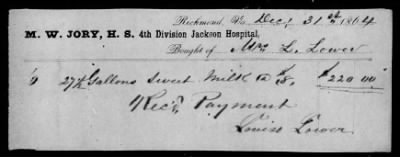 Richmond, Va. Dec. 31st 1864
M. W. JORY, H. S. 4th Division Jackson Hospital,
Bought of Mrs L. Lower
27½ Gallons Sweet Milk @ $8. $220.00
Rec'd Payment
Louisa Lower